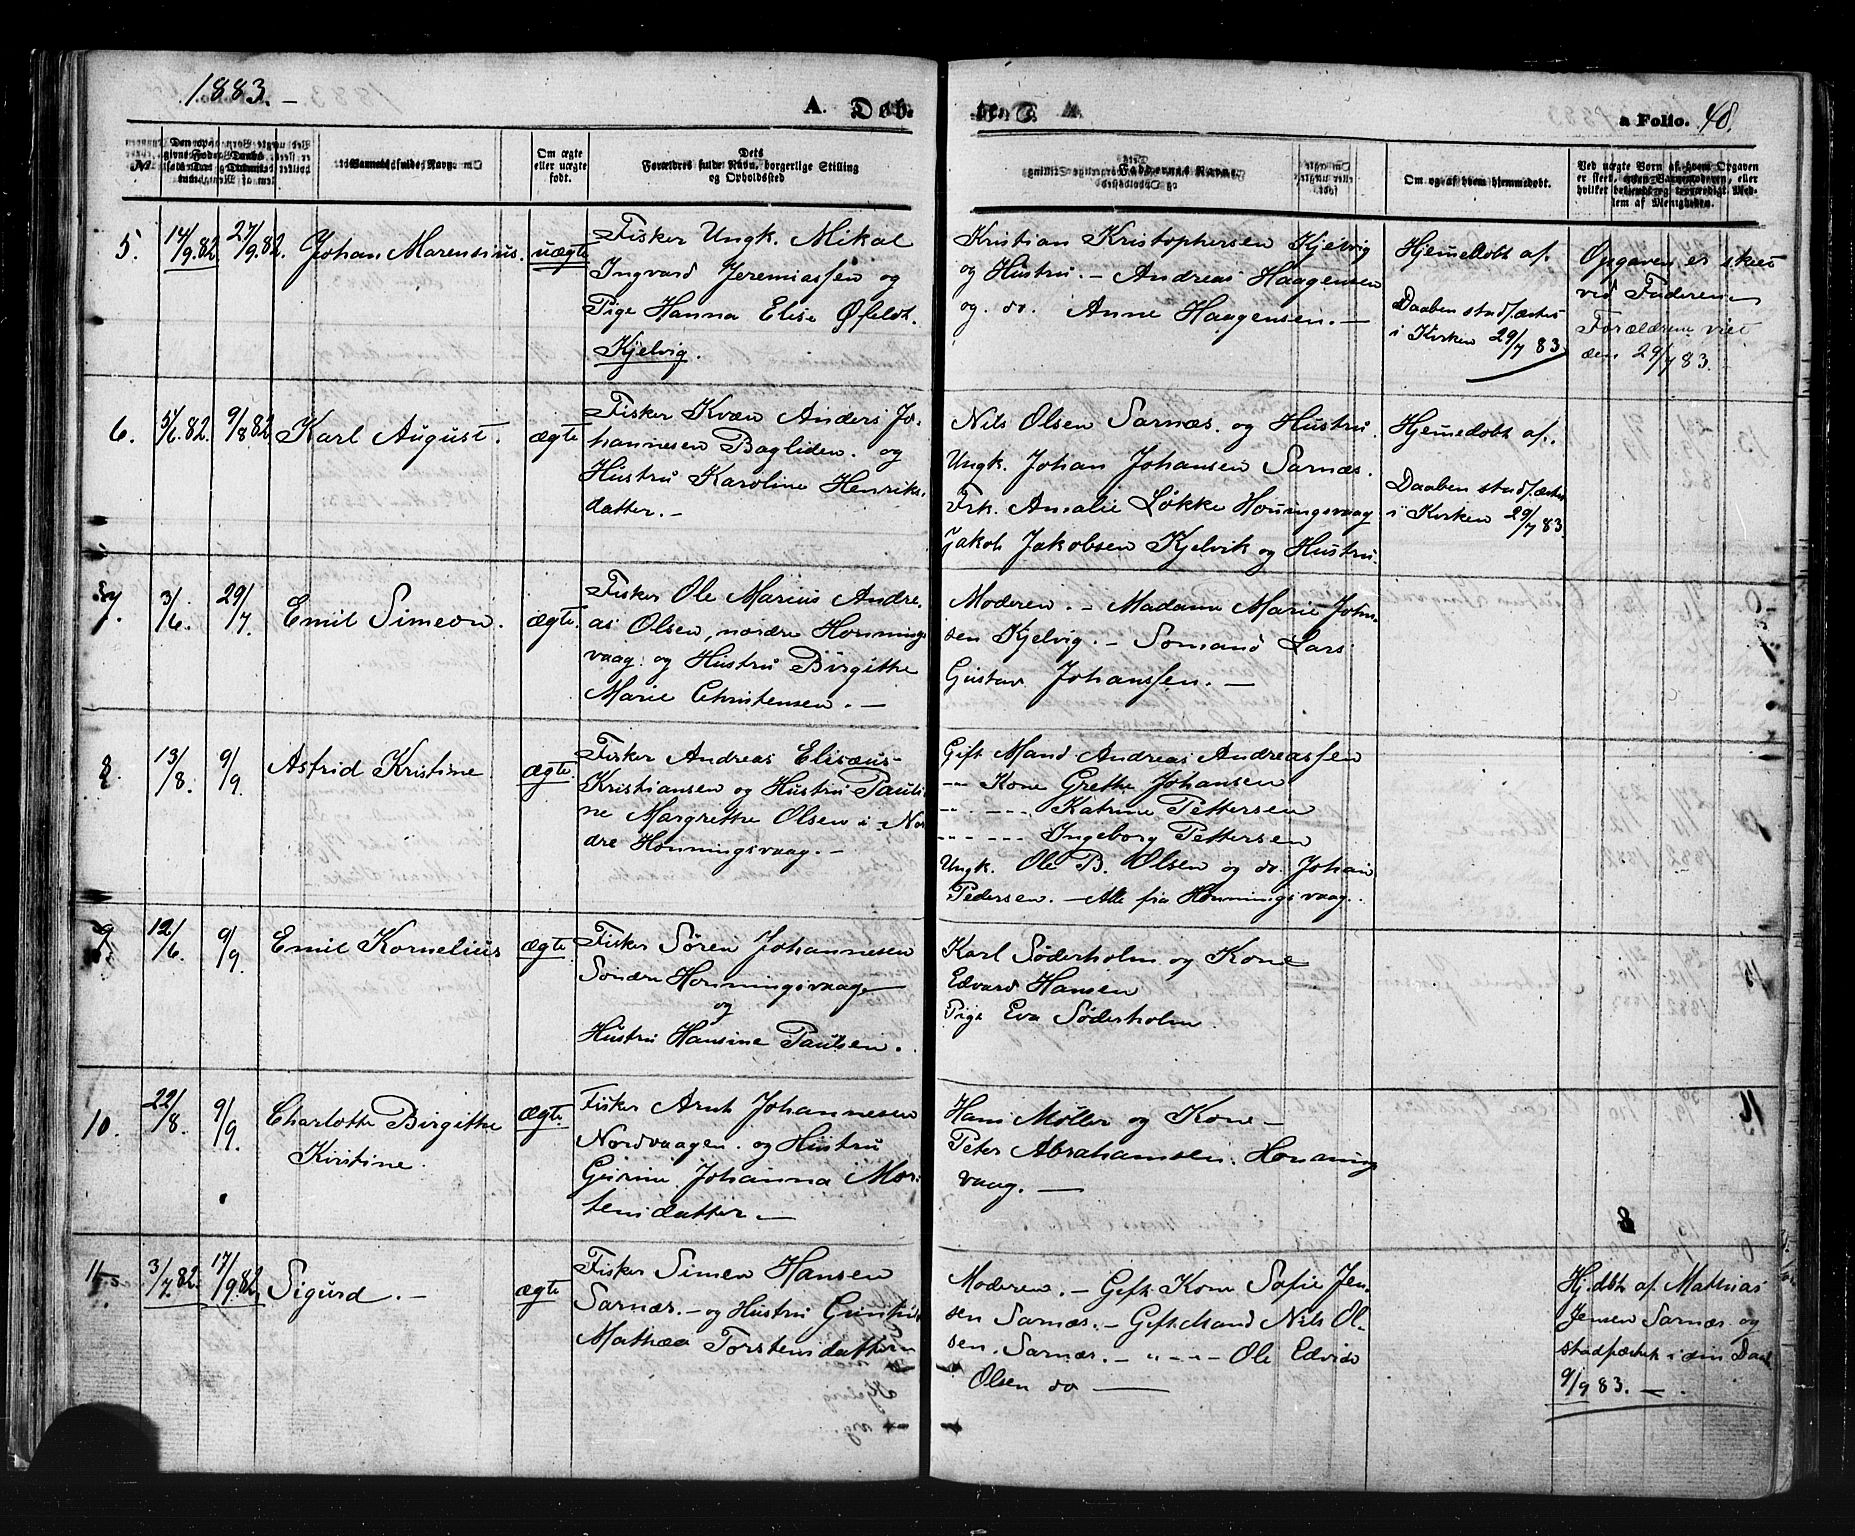 1883.-
A. Døb- te. A
a Folio. 48.
No.
Barnets fulde Navn.
Om ægte
eller uægte
født.
Dets
Forældres fulde Navn, borgerlige Stilling
og Opholdssted
Faddernes Navne.
Om og af hvem hjemmedøbt.
Ved uægte Børn af hvem Opgaven
er skeet, eller
lem af Menigheden.
5. 14/9.82 27/9.82. Johan Marensius. uægte
Fisker Ungk. Mikal
Ingvard Jeremiassen og
Pige Hanna Elise Øfeldt.
Kjelvig.
Kristian Kristophersen Kjelvig
og Hustru. - Andreas Haagensen
og do. Anne Haagensen. -
Hjemedøbt af.
Daaben stadfæstet
i Kirken 29/7 83.
Opgaven er skeet
vid Faderen
Forældrene viet
den 29/7 83.
6. 5/6.82. 9/8 82 Karl August. ægte
Fisker Kvæn Anders Jo-
hannesen Bagliden. og
Hustru Karoline Henriks-
datter. -
Nils Olsen Sarnæs. og Hustru.
Ungk. Johan Johansen Sarnæs.
Frk. Amalie Løkke Honningsvaag
Jakob Jakobsen Kjelvik og Hustru.
Hjemedøbt af.
Daaben stadfæstet
i Kirken 29/7 83.
7. 3/6. 29/7. Emil Simeon. ægte.
Fisker Ole Marius Andre-
as Olsen, nordre Honnings
vaag. og Hustru Birgithe
Marie Christensen. -
Moderen. - Madame Marie John-
sen Kjelvig. - Sømand Lars
Gustav Johanssen. -
8. 13/8. 9/9 Astrid Kristine ægte.
Fisker Andreas Elisæus
Kristiansen og Hustru Pauli-
ne Margrethe Olsen i Nor
dre Honningsvaag. -
Gift Mand Andreas Andreassen
-"- Kone Grethe Johansen
" - - - Katrine Pettersen
" - - - Ingeborg Pettersen
Ungk. Ole B. Olsen og do. Johan
Pedersen. - Alle fra Honningsvaag.
9 12/6. 9/9. Emil Kornelius ægte.
Fisker Søren Johannesen
Søndre Honningsvaag
og
Hustru Hansine Paulsen.
Karl Søderholm og Kone
Edvard Hansen
Pige Eva Søderholm.
10. 22/8. 9/9. Charlotte Birgithe ægte.
Kirstine.
Fisker Arnt Johannesen
Nordvaagen. og Hustru
Gurine Johanna Mor-
tensdatter -
Hans Møller og Kone -
Peter Abrahamsen. Honning
vaag. -
8
11. 3/7.82. 17/9.82, Sigurd. - ægte
Fisker Simen Hansen
Sarnæs. - og Hustru
Mathea Torstensdatter
Moderen. - Gift Kone Sofie Jen-
sen Sarnæs. - Gift Mand Nils Ol-
sen. Sarnæs. - " - - - Ole Edvid
Olsen do -
Hj.døbt af Mathias
Jensen Sarnæs og
stadfæstet i din Daab
9/9 83. -